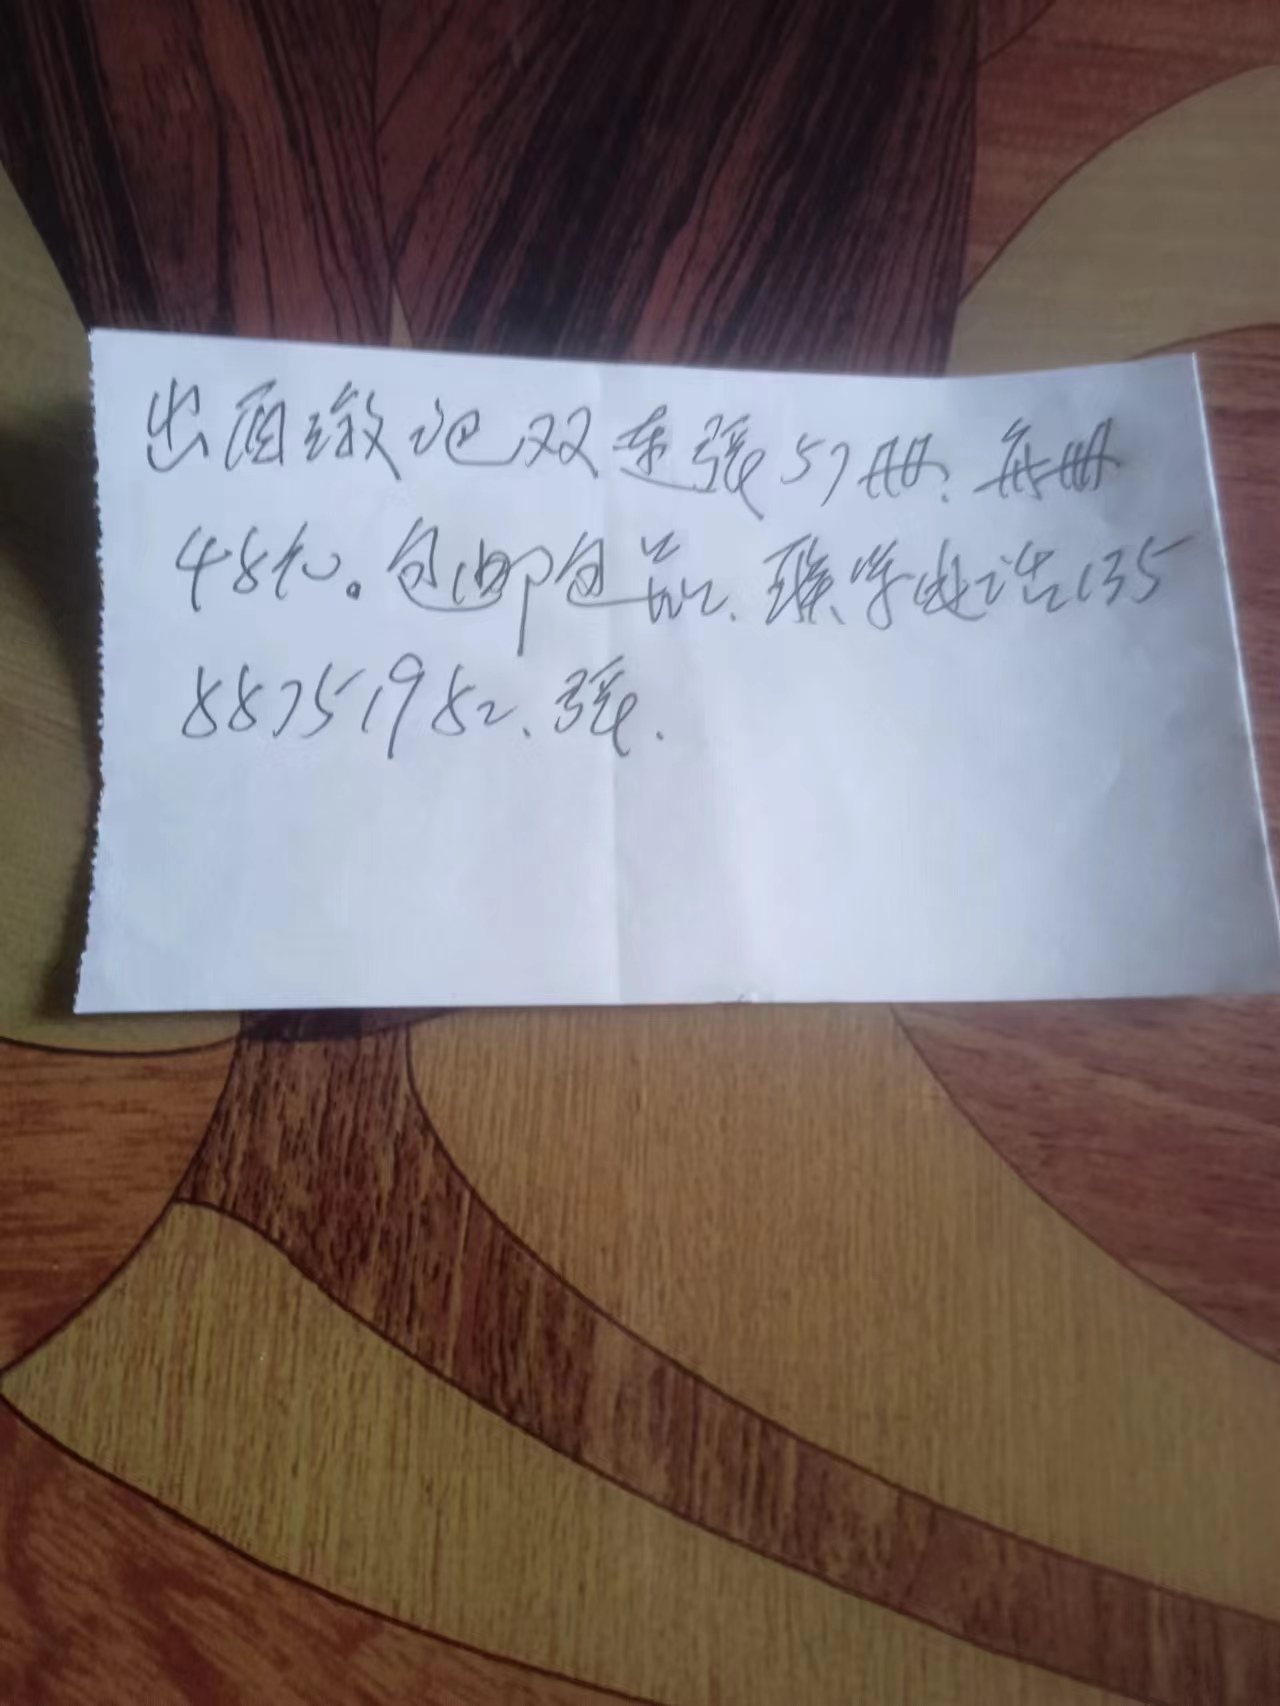 出西游记双连张57册.每册
48元。包邮包品.联系电话135
88751982.张.